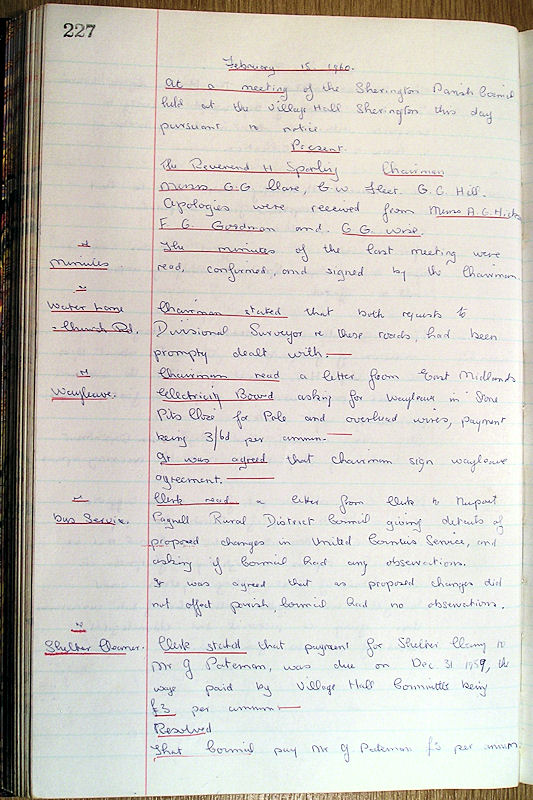 227
February 15 1960.
At a meeting of the Sherington Parish Council
held at the Village Hall Sherington this day
pursuant to notice
Present.
The Reverend H Sparling Chairman
Messrs. G.G. Clare, G.W. Fleet. G.C. Hill.
Apologies were received from Messrs A.G. Hicks
F. G. Goodman and G.G. Wise.
The minutes of the last meeting were
Minutes read, confirmed, and signed by the Chairman.
Water Lane Chairman stated that both requests to
- Church Rd. Divisional Surveyor re these roads, had been
prompty dealt with.
Chairman read a letter from East Midlands
Wayleave. Electricity Board asking for wayleave in Stone
Pits Close for Pole and overhead wires, payment
being 3/6d per annum.
It was agreed that chairman sign wayleave
agreement.
Clerk read a letter from Clerk to Newport
bus Service. Pagnell Rural District Council giving details of
proposed changes in United Counties Service, and
asking if Council had any observations.
It was agreed that as proposed changes did
not affect parish, Council had no observations.
Shelter Cleaner. Clerk stated that payment for Shelter Cleaning to
Mr G Pateman, was due on Dec 31 1959, the
wage paid by Village Hall Committee being
£3 per annum
Resolved
That Council pay Mr G Pateman £3 per annum.